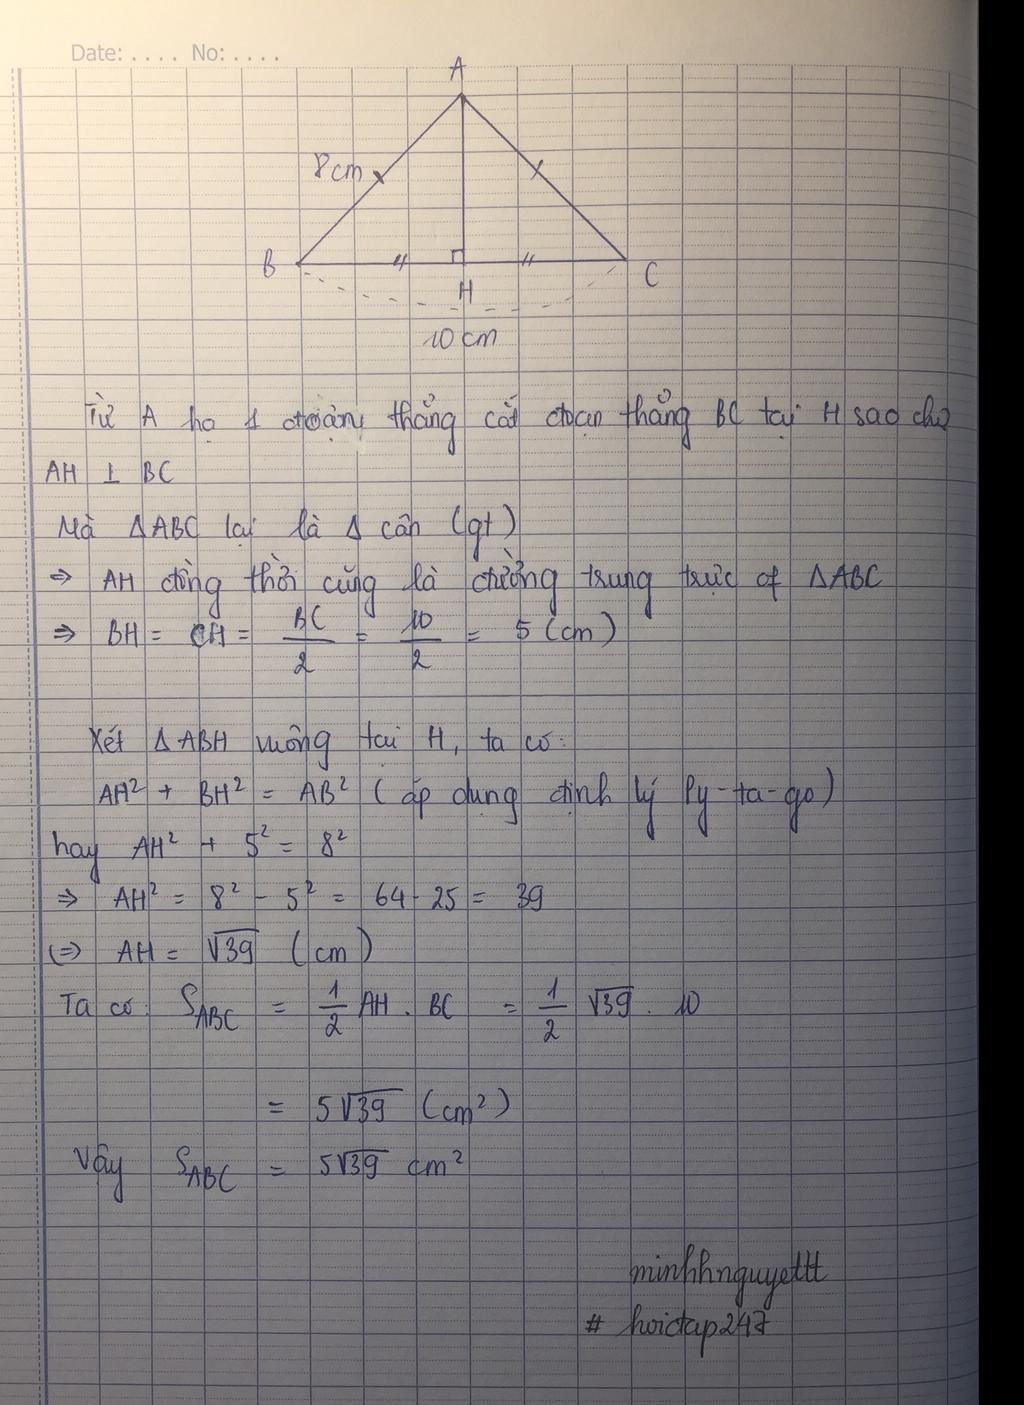 Date: .... No: ....
A
8cm
B
C
H
10 cm
Từ A hạ 1 đoạn thẳng cắt đoạn thẳng BC tại H sao cho
AH ⊥ BC
Mà ΔABC lại là Δ cân (gt)
⇒ AH đồng thời cũng là đường trung trực of ΔABC
⇒ BH = CH = BC/2 = 10/2 = 5 (cm)
Xét ΔABH vuông tại H, ta có:
AH² + BH² = AB² (áp dụng định lý Py-ta-go)
hay AH² + 5² = 8²
⇒ AH² = 8² - 5² = 64 - 25 = 39
(=) AH = √39 (cm)
Ta có: S_ABC = 1/2 AH . BC = 1/2 √39 . 10
= 5√39 (cm²)
Vậy S_ABC = 5√39 cm²
minhhnguyettt
# hoidap247